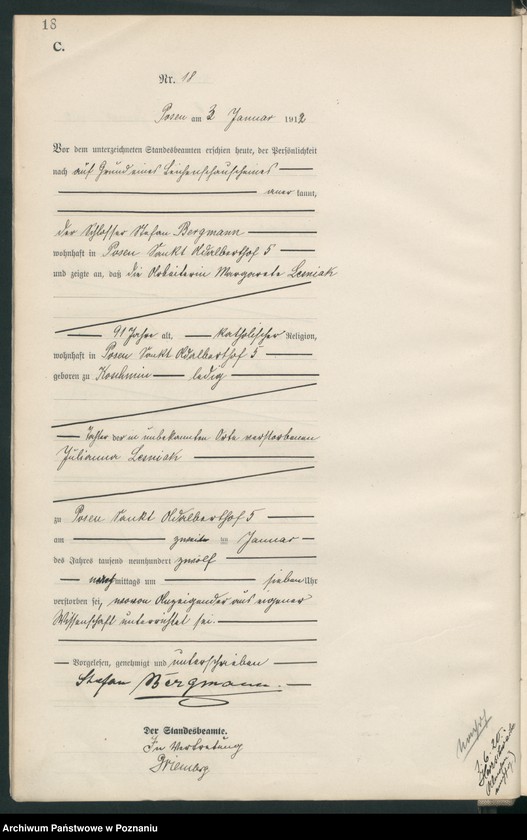 18
C.
Nr. 18
Posen am 3 Januar 1912
Vor dem unterzeichneten Standesbeamten erschien heute, der Persönlichkeit
nach auf Grund eines Leichenschauscheines
aner kannt,
der Schlosser Stefan Bergmann
wohnhaft in Posen Sankt Adalberthof 5
und zeigte an, daß die Arbeiterin Margarete Lesniak
91 Jahre alt, katholischer Religion,
wohnhaft in Posen Sankt Adalberthof 5
geboren zu Koschmin ledig
Tochter der in unbekannten Orte verstorbenen
Julianna Lesniak
zu Posen Sankt Adalberthof 5
am zweiten Januar
des Jahres tausend neunhundert zwölf
nachmittags um sieben Uhr
verstorben sei, wovon Anzeigender aus eigener
Wissenschaft unterrichtet sei.
Vorgelesen, genehmigt und unterschrieben
Stefan Bergmann.
Der Standesbeamte.
In Vertretung
Archiwum Państwowe w Poznaniu